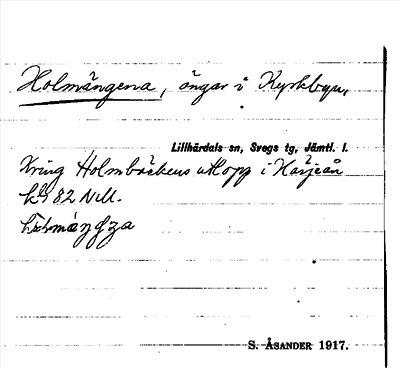 Holmängena, ängar i Kyrkbyn,
Lillhärdals sn, Svegs tg, Jämtl. l.
Kring Holmbäckens utlopp i Härjeån
82 NM.
S. ÅSANDER 1917.